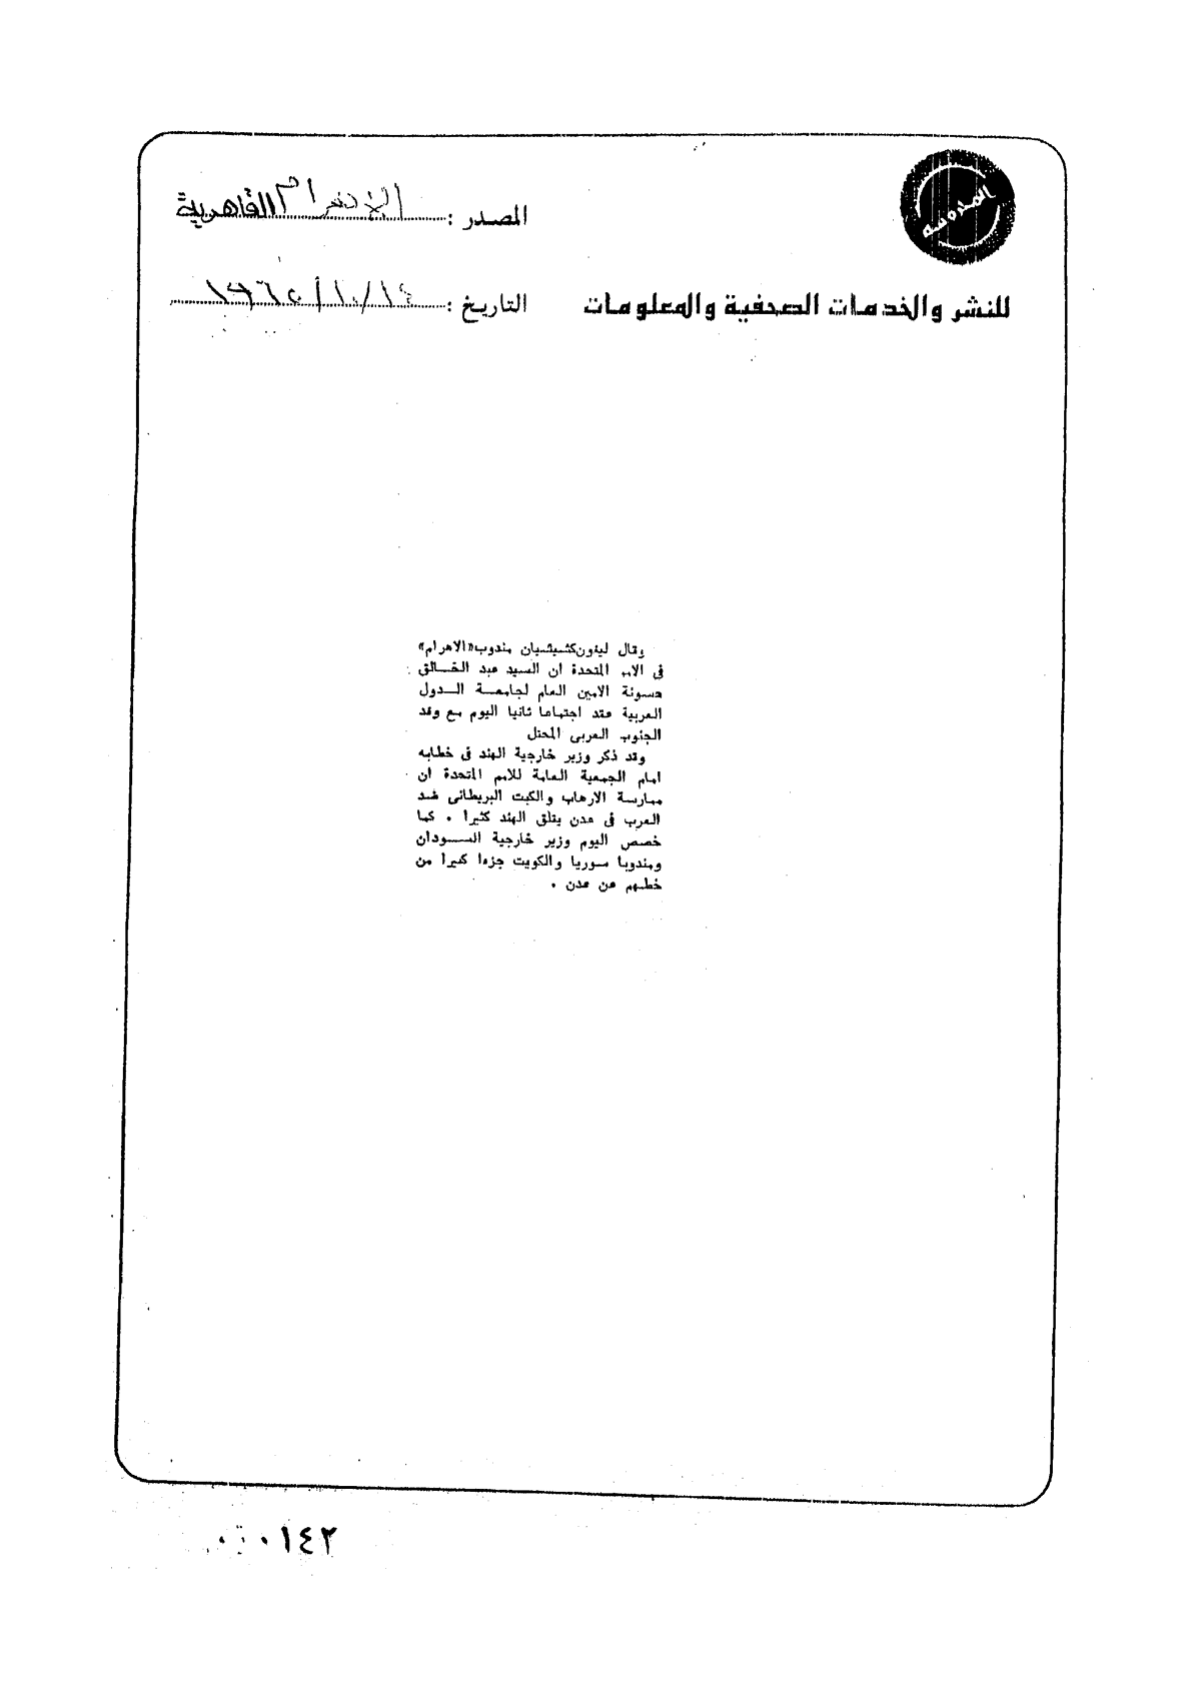 المحروسة
للنشر والخدمات الصحفية والمعلومات
المصدر : الاهرام القاهرية
التاريخ : ١٤/١٠/١٩٦٥
وقال ليفون كشيشيان مندوب «الاهرام»
فى الامم المتحدة ان السيد عبد الخـــالق
حسونة الامين العام لجامعـــة الـــدول
العربية عقد اجتماعا ثانيا اليوم مع وفد
الجنوب العربى المحتل
وقد ذكر وزير خارجية الهند فى خطابه
امام الجمعية العامة للامم المتحدة ان
ممارسة الارهاب والكبت البريطانى ضـد
العرب فى عدن يقلق الهند كثيرا . كما
خصص اليوم وزير خارجية الســـودان
ومندوبا سوريا والكويت جزءا كبيرا من
خطبهم عن عدن .
٠٠٠١٤٢